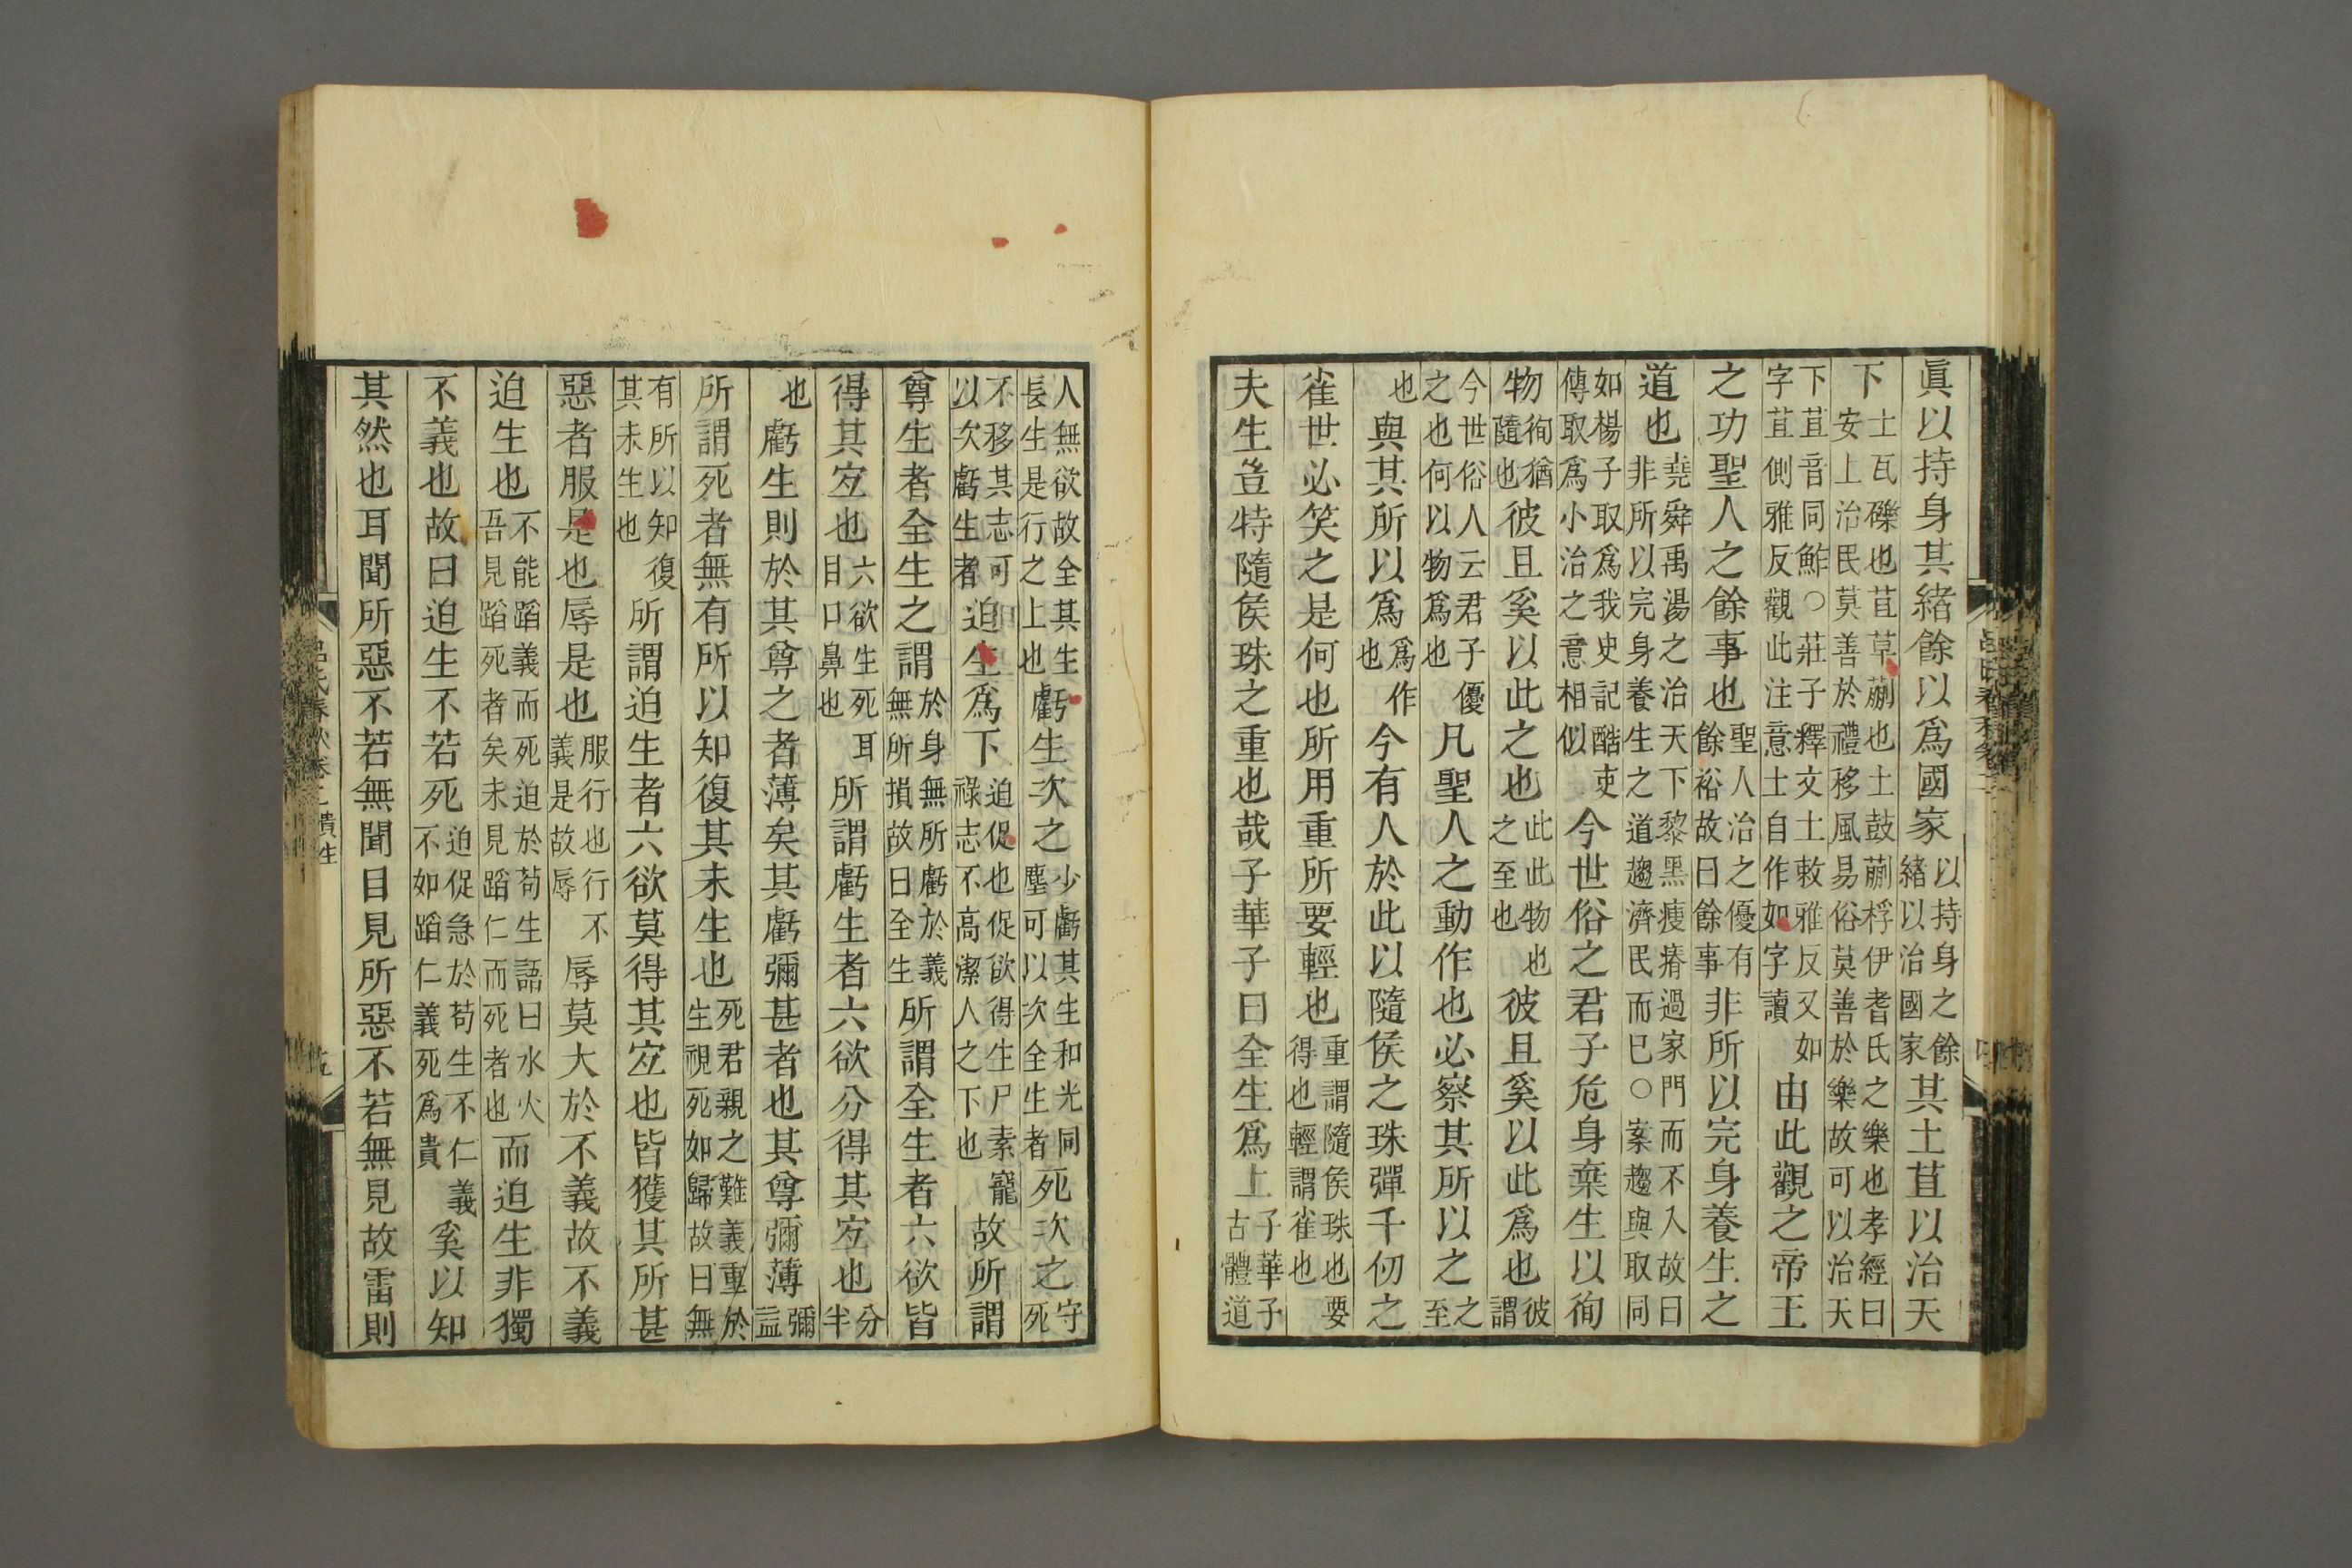 眞以持身其緒餘以爲國家以持身之餘緒以治國家其土苴以治天
下土瓦礫也苴草蒯也土鼓蒯桴伊耆氏之樂也孝經曰安上治民莫善於禮移風易俗莫善於樂故可以治天
下苴音同鮓○莊子釋文土敕雅反又如字苴側雅反觀此注意土自作如字讀由此觀之帝王
之功聖人之餘事也聖人治之優有餘裕故曰餘事非所以完身養生之
道也堯舜禹湯之治天下黎黑瘦瘠過家門而不入故曰非所以完身養生之道趨濟民而已○案趨與取同
如楊子取爲我史記酷吏傳取爲小治之意相似今世俗之君子危身棄生以徇
物徇猶隨也彼且奚以此之也此此物也之至也彼且奚以此爲也彼謂
今世俗人云君子優之也何以物爲也凡聖人之動作也必察其所以之之至
也與其所以爲爲作也今有人於此以隨侯之珠彈千仞之
雀世必笑之是何也所用重所要輕也重謂隨侯珠也要得也輕謂雀也
夫生豈特隨侯珠之重也哉子華子曰全生爲上子華子古體道
人無欲故全其生長生是行之上也虧生次之少虧其生和光同塵可以次全生者死次之守死
不移其志可以次虧生者迫生爲下迫促也促欲得生尸素寵祿志不高潔人之下也故所謂
尊生者全生之謂於身無所虧於義無所損故曰全生所謂全生者六欲皆
得其宐也六欲生死耳目口鼻也所謂虧生者六欲分得其宐也分半
也虧生則於其尊之者薄矣其虧彌甚者也其尊彌薄彌益
所謂死者無有所以知復其未生也死君親之難義重於生視死如歸故曰無
有所以知復其未生也所謂迫生者六欲莫得其宐也皆獲其所甚
惡者服是也辱是也服行也行不義是故辱辱莫大於不義故不義
迫生也不能蹈義而死迫於苟生語曰水火吾見蹈死者矣未見蹈仁而死者也而迫生非獨
不義也故曰迫生不若死迫促急於苟生不仁義不如蹈仁義死爲貴奚以知
其然也耳聞所惡不若無聞目見所惡不若無見故雷則
呂氏春秋卷二 貴生 五